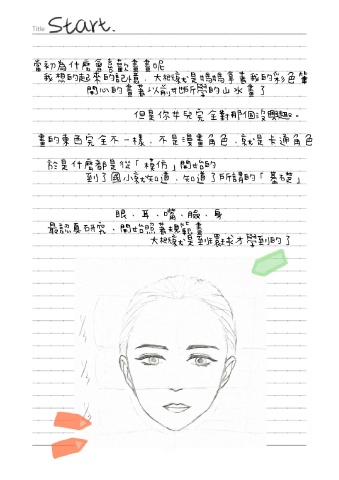 Title Start.
當初為什麼會喜歡畫畫呢
我想的起來的記憶，大概就是媽媽拿著我的彩色筆
開心的畫著以前所學的山水畫了
但是你女兒完全對那個沒興趣。
畫的東西完全不一樣，不是漫畫角色，就是卡通角色
於是什麼都是從「模仿」開始的
到了國小就知道，知道了所謂的「基礎」
眼、耳、嘴、臉、身
最認真研究，開始照著規範畫
大概就是到這